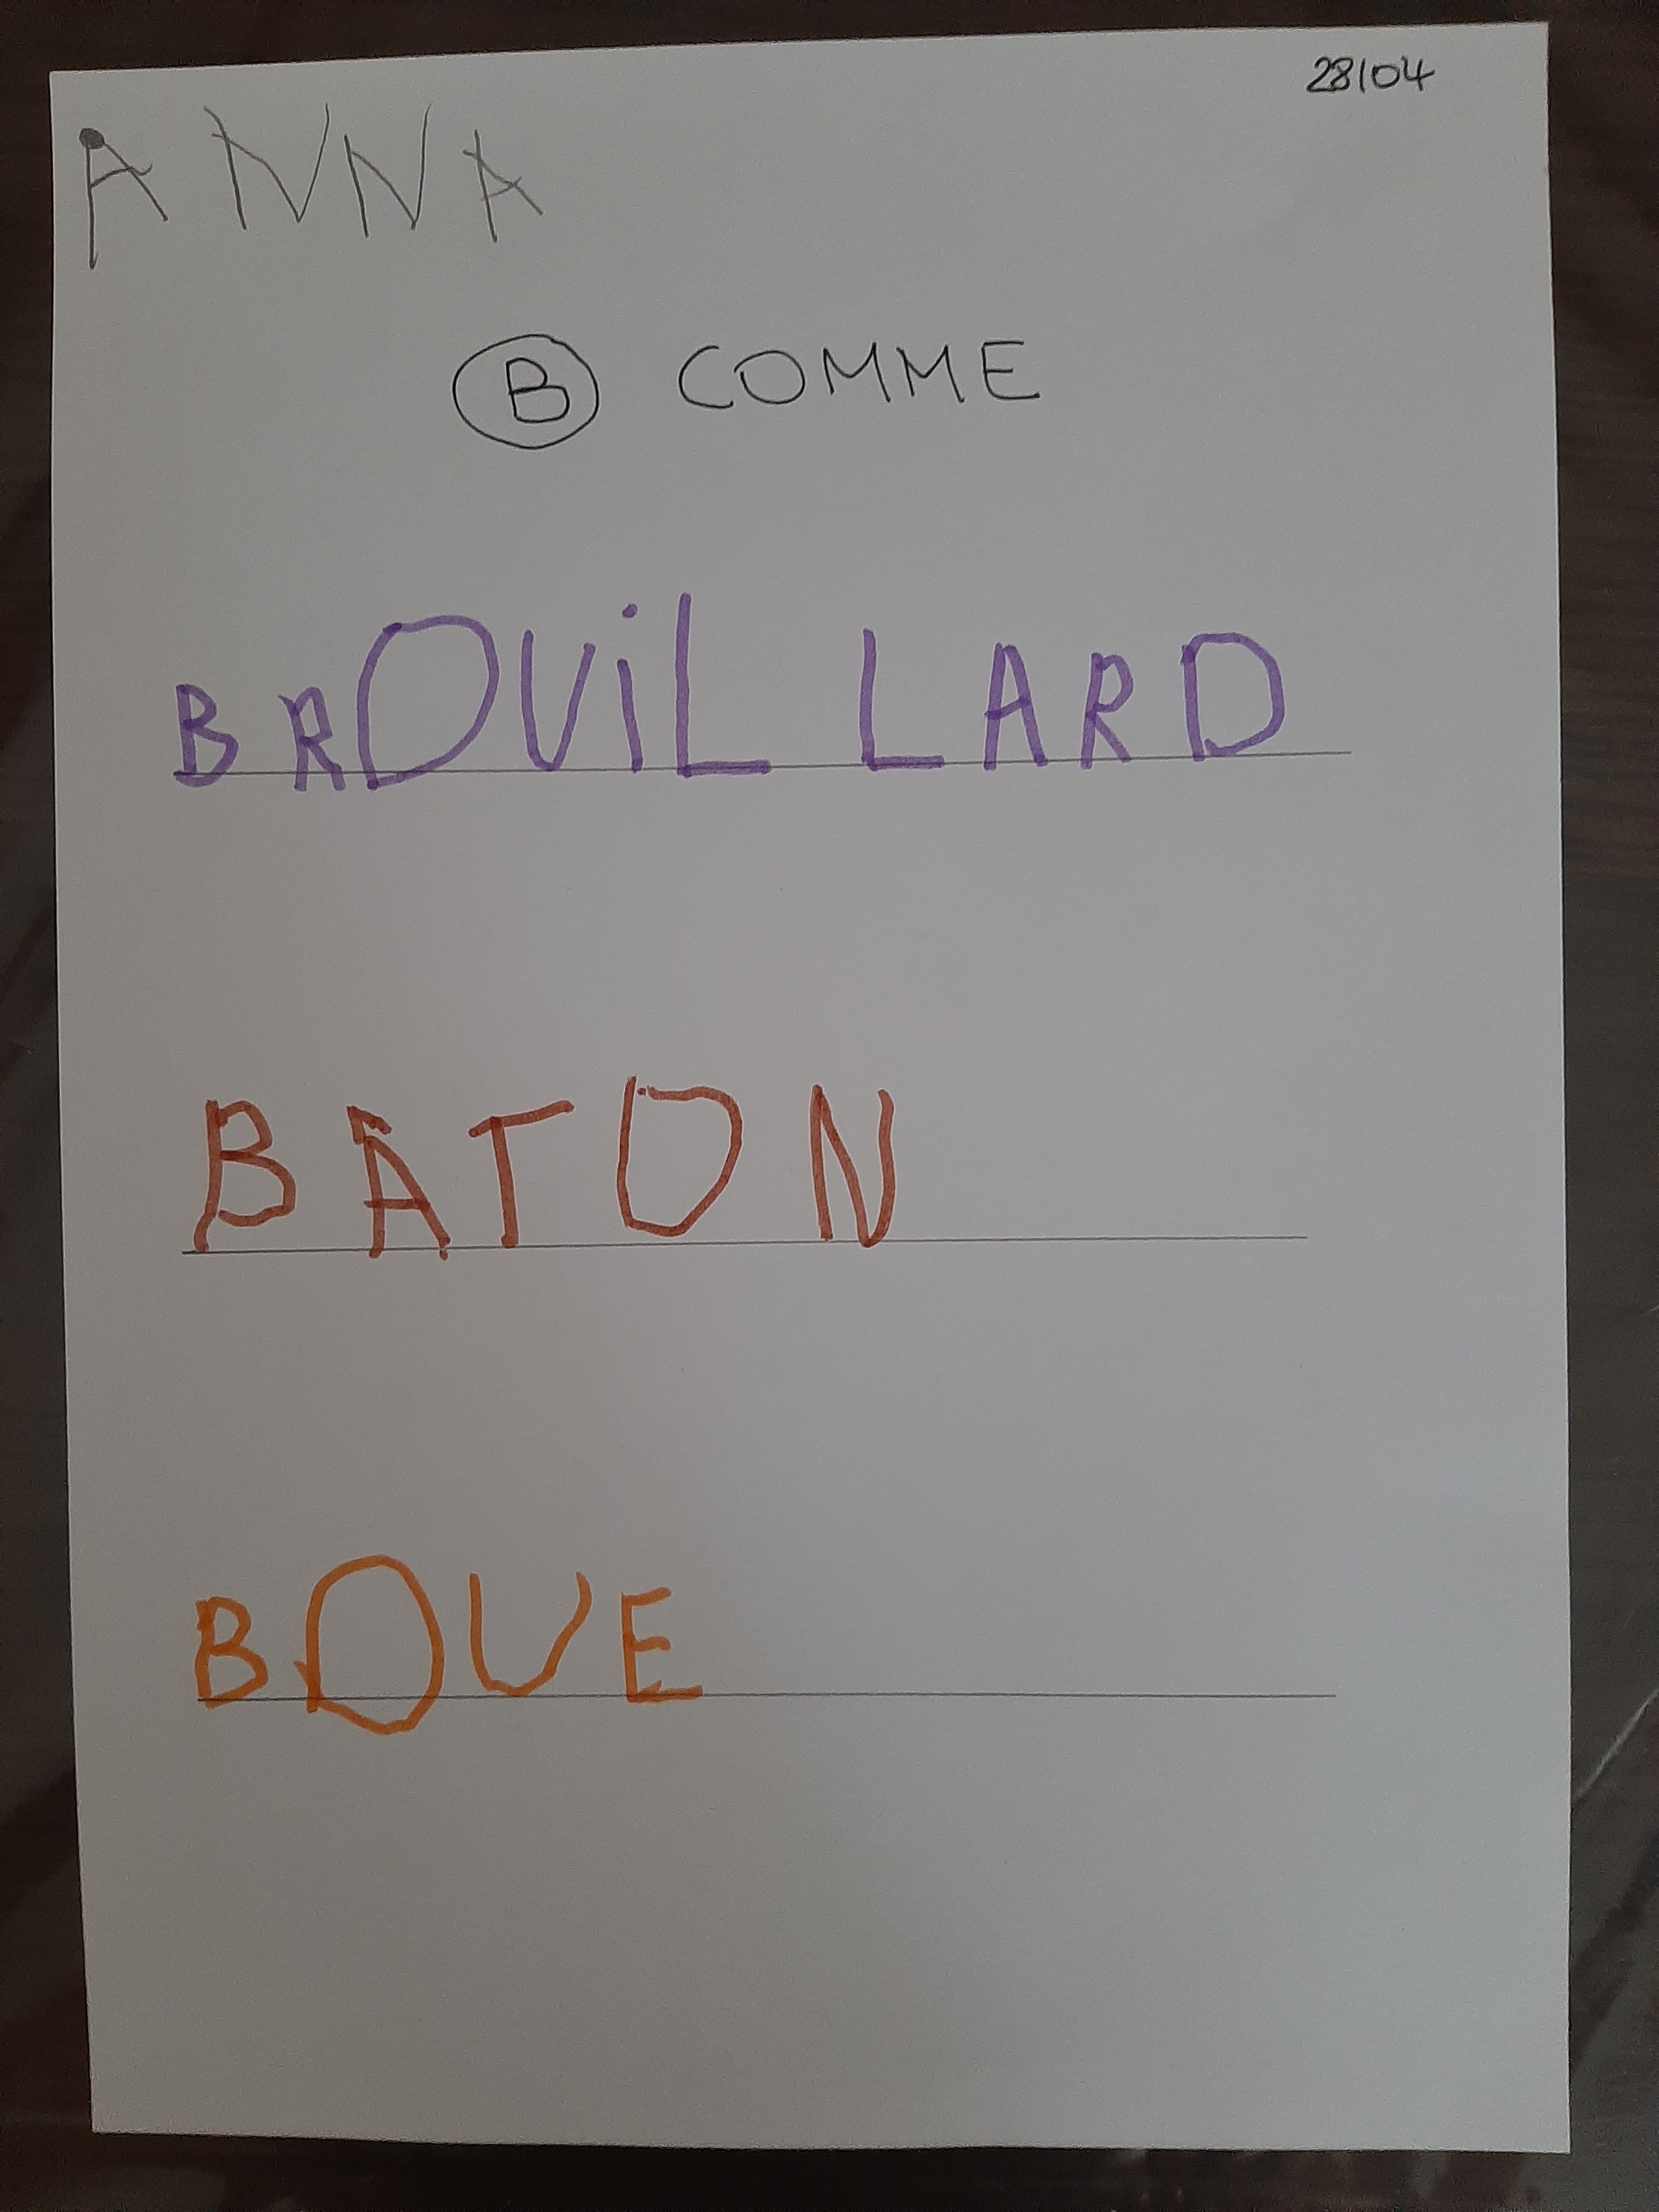 28/04
ANNA
B COMME
BROUiLLARD
BATON
BOUE